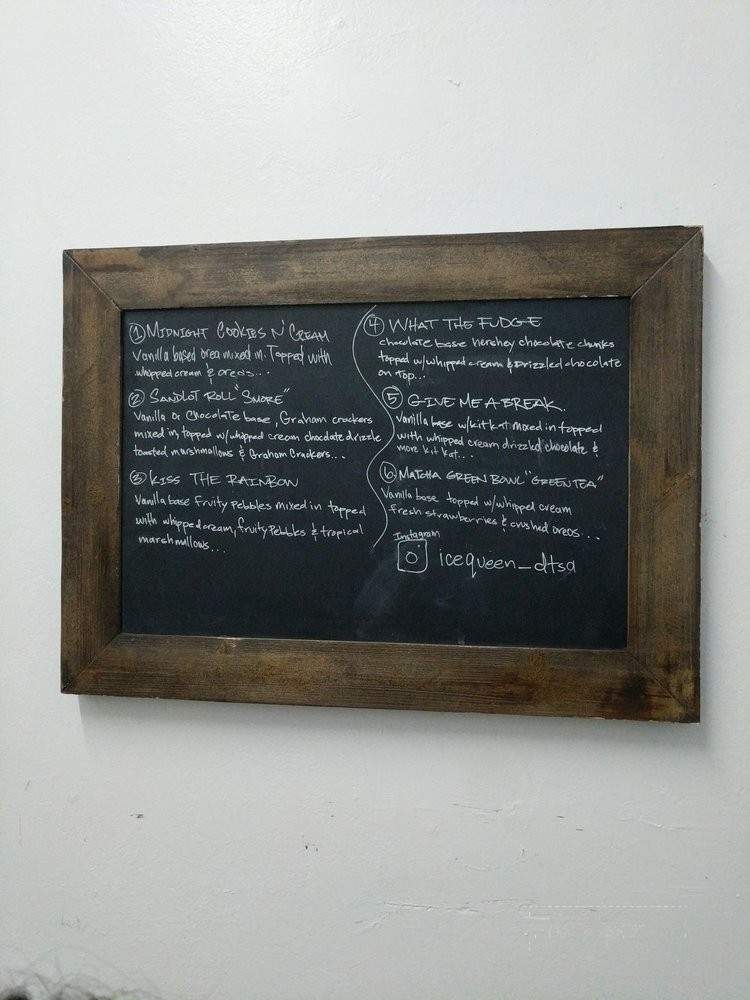 ① MIDNIGHT COOKIES N' CREAM
Vanilla based oreo mixed in. Topped with
whipped cream & oreos...
② SANDLOT ROLL "SMORE"
Vanilla or Chocolate base, Graham crackers
mixed in, topped w/whipped cream chocolate drizzle
toasted marshmallows & Graham Crackers...
③ KISS THE RAINBOW
Vanilla base Fruity Pebbles mixed in topped
with whipped cream, fruity Pebbles & tropical
marshmallows...
④ WHAT THE FUDGE
chocolate base hershey chocolate chunks
topped w/whipped cream & Drizzled chocolate
on top...
⑤ GIVE ME A BREAK.
Vanilla base w/kitkat mixed in topped
with whipped cream drizzled chocolate &
more kit kat...
⑥ MATCHA GREEN BOWL "GREEN TEA"
Vanilla base topped w/whipped cream
fresh strawberries & crushed oreos...
Instagram
icequeen_dtsa